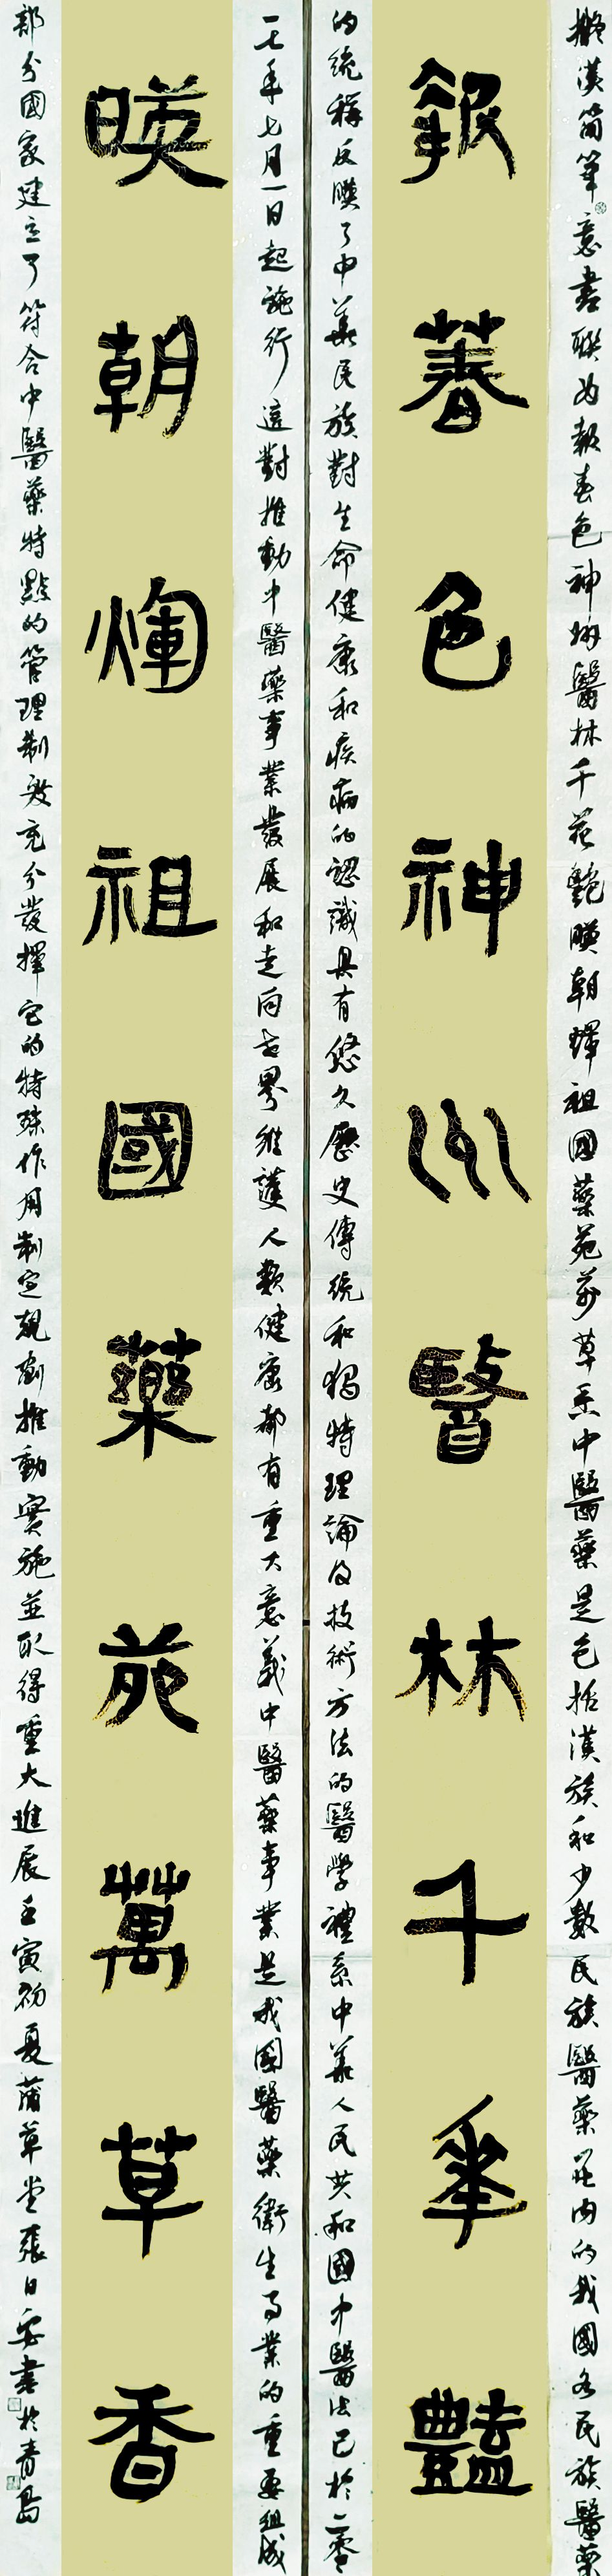 擬漢簡筆意書聯為報春色神州醫林千花艷暎朝輝祖國藥苑萬草香中醫藥是包括漢族和少數民族醫藥在内的我國各民族醫藥
報萅色神州醫林千華豔
的統稱反暎了中華民族對生命健康和疾病的認識具有悠久歷史傳統和獨特理論及技術方法的醫學體系中華人民共和國中醫法已於二零
一七年七月一日起施行這對推動中醫藥事業發展和走向世界維護人類健康都有重大意義中醫藥事業是我國醫藥衛生事業的重要組成
暎朝煇祖國藥苑萬草香
部分國家建立了符合中醫藥特點的管理制度充分發揮它的特殊作用制定規劃推動實施並取得重大進展壬寅初夏蒲草堂張日安書於青島